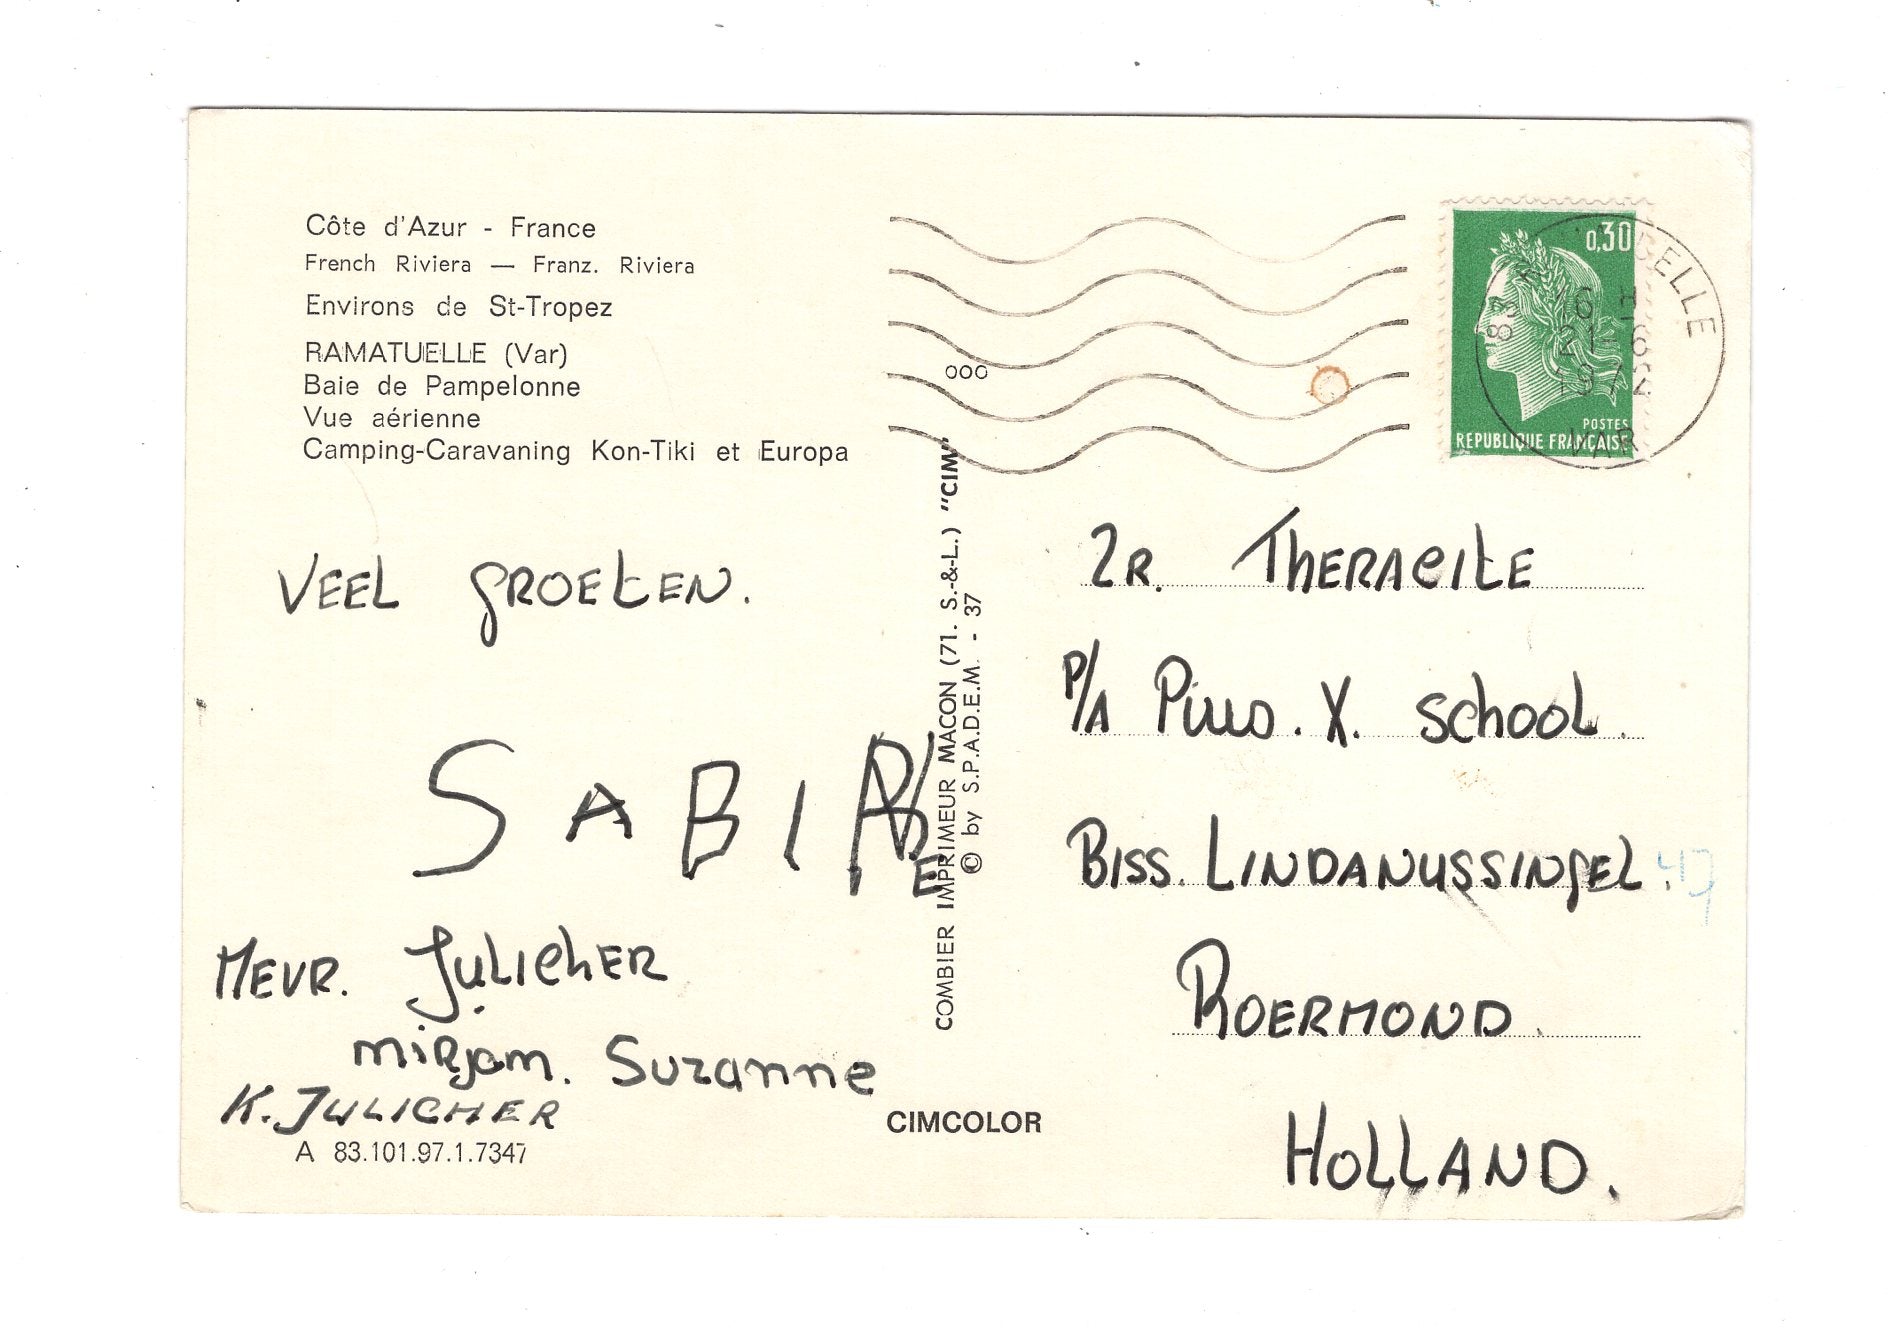 Côte d'Azur - France
French Riviera — Franz. Riviera
Environs de St-Tropez
RAMATUELLE (Var)
Baie de Pampelonne
Vue aérienne
Camping-Caravaning Kon-Tiki et Europa
VEEL GROETEN.
SABINE
MEVR. JULICHER
MIRJAM. SUZANNE
K. JULICHER
A 83.101.97.1.7347
COMBIER IMPRIMEUR MACON (71. S.-&-L.) "CIM"
© by S.P.A.D.E.M. - 37
CIMCOLOR
000
0,30
POSTES
REPUBLIQUE FRANÇAISE
83
16 H
21-6
1972
VAR
ZR. THERACITE
P/A PIUS. X. SCHOOL.
BISS. LINDANUSSINGEL.
ROERMOND.
HOLLAND.